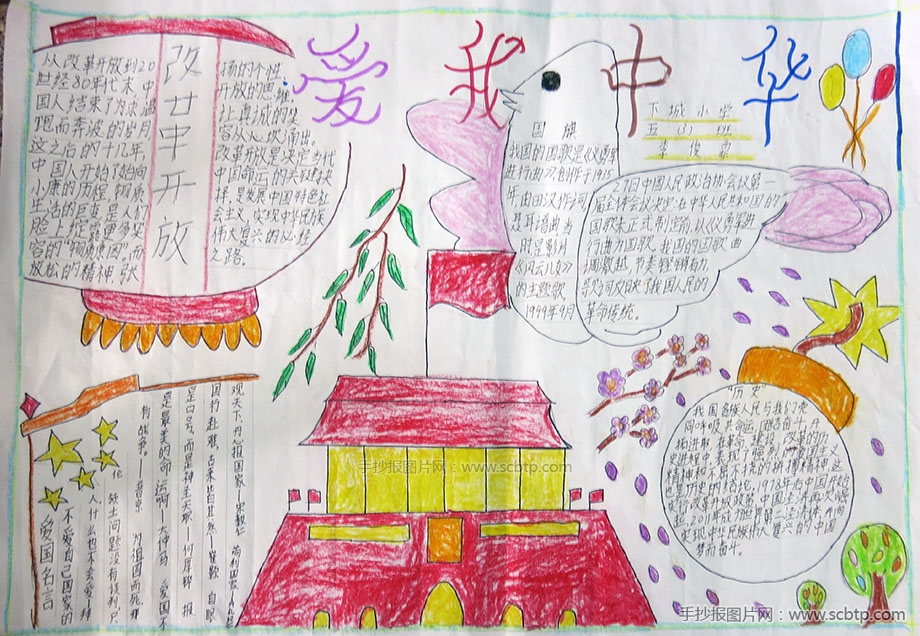 爱我中华
下城小学
五(3)班
改廿中开放
从改革开放到20
世纪80年代末,中
国人结束了为求温
跑而奔波的岁月
这之后的十几年,
中国人开始了始向
小康的历程,物质
生活的巨变是人们
脸上绽露更多笑
容的"
放松的精神,张
扬的个性
开放的思维
让真诚的笑
容从心底涌出。
改革开放是决定当代
中国命运的关键抉
择,是发展中国特色社
会主义、实现中华民族
伟大复兴的必经
之路.
国旗
我国的国歌是《义勇军
进行曲》,创作于1935
年,由田汉作词
聂耳谱曲,当
时是影片
《风云儿女》
的主题歌
1949年9月
27日中国人民政治协会议第一
届全体会议决定:在中华人民共和国的
国歌未正式制定前,以《义勇军进
行曲》为国歌。我国的国歌曲
调激越,节奏铿锵有力,
歌词反映了我国人民的
革命传统。
"历史"
我国各族人民与我们党
同呼吸共命运,团结奋斗,开
拓进取,在革命、建设、改革的历
史进程中,表现了强烈的爱国主义
精神和不屈不挠的拼搏精神。这
也是历史的结论,1978年后中国开始
实行改革开放政策,中国经济再次崛
起,2011年成为世界第二经济体,在向
实现中华民族伟大复兴的中国
梦而奋斗。
爱国名言
不爱自己国家的
人,什么也不会爱。拜
伦 领土问题没有谈判,只
有战争。——普京 为祖国而死,那
是最美的命运啊!大仲马 爱国不
是口号,而是神圣天职——何厚铧 报
国行赴难,古来皆共然——崔颢 自眼
观天下,丹心报国家——宋教仁 苟利国家
手抄报图片网:www.scbtp.com
手抄报图片网:www.scbtp.com